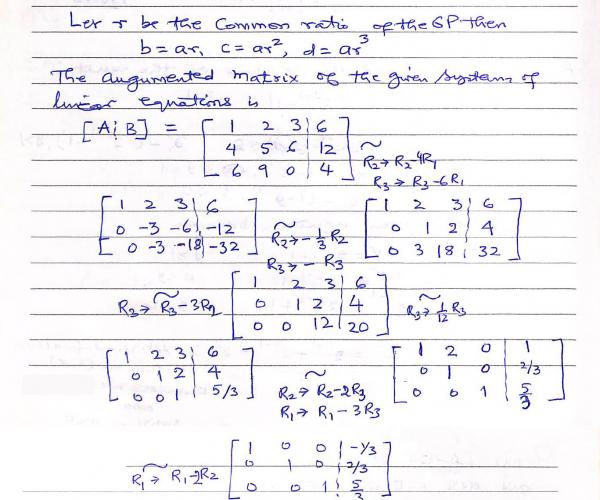 Let r be the Common ratio of the GP then
b = ar, c = ar², d = ar³
The augumented matrix of the given system of
linear equations is
[A¦B] = [ 1 2 3 | 6
4 5 6 | 12
6 9 0 | 4 ] ~ R₂→R₂-4R₁
R₃→R₃-6R₁
[ 1 2 3 | 6
0 -3 -6 | -12
0 -3 -18 | -32 ] ~ R₂→-1/3 R₂
R₃→-R₃
[ 1 2 3 | 6
0 1 2 | 4
0 3 18 | 32 ]
~ R₃→R₃-3R₂ [ 1 2 3 | 6
0 1 2 | 4
0 0 12 | 20 ] ~ R₃→1/12 R₃
[ 1 2 3 | 6
0 1 2 | 4
0 0 1 | 5/3 ] ~ R₂→R₂-2R₃
R₁→R₁-3R₃
[ 1 2 0 | 1
0 1 0 | 2/3
0 0 1 | 5/3 ]
~ R₁→R₁-2R₂ [ 1 0 0 | -1/3
0 1 0 | 2/3
0 0 1 | 5/3 ]